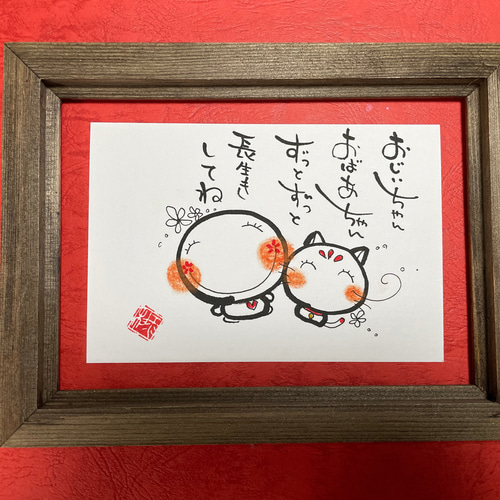 おじいちゃん
おばあちゃん
ずっとずっと
長生き
してね